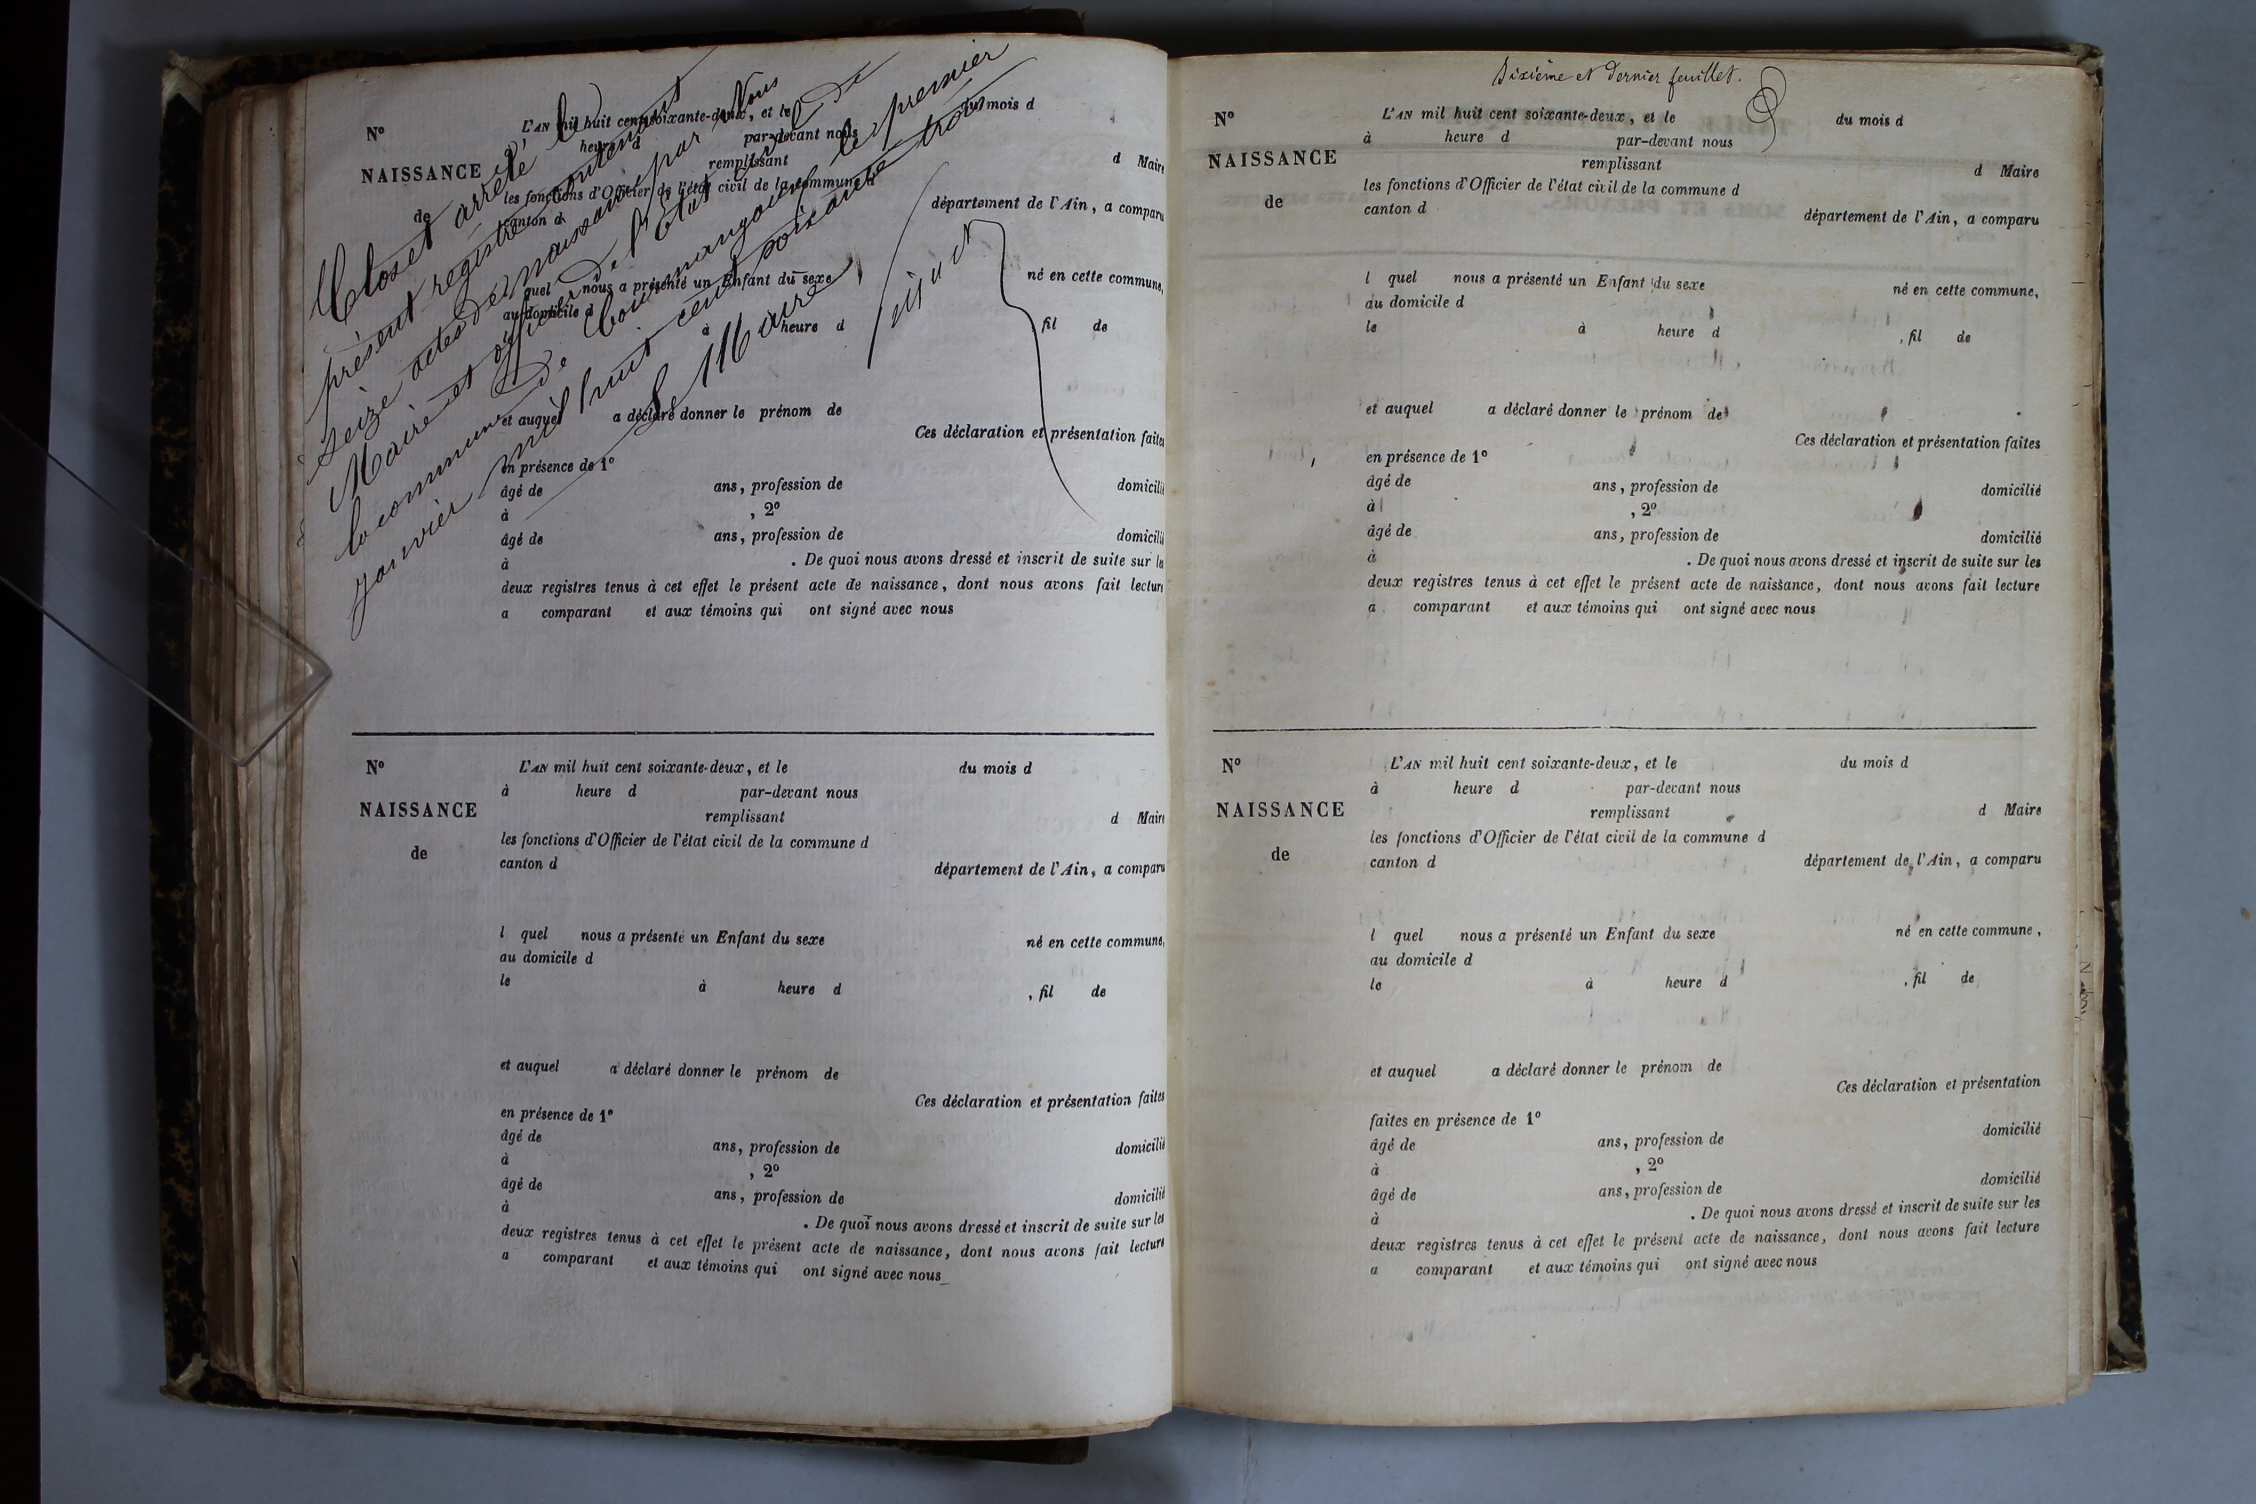 Clos et arrêté le
présent registre contenant
seize actes de naissance par Nous
Maire et officier de l'Etat civil de
la commune de le premier
janvier mil huit cent soixante trois
Le Maire
N°
NAISSANCE
de
L'AN mil huit cent soixante-deux, et le du mois d
heure d par-devant nous
remplissant d Maire
les fonctions d'Officier de l'état civil de la commune d
canton d département de l'Ain, a comparu
quel nous a présenté un Enfant du sexe né en cette commune,
au domicile d
à heure d , fil de
et auquel a déclaré donner le prénom de
Ces déclaration et présentation faites
en présence de 1°
âgé de ans, profession de domicilié
à , 2°
âgé de ans, profession de domicilié
à . De quoi nous avons dressé et inscrit de suite sur les
deux registres tenus à cet effet le présent acte de naissance, dont nous avons fait lecture
a comparant et aux témoins qui ont signé avec nous
N°
NAISSANCE
de
L'AN mil huit cent soixante-deux, et le du mois d
à heure d par-devant nous
remplissant d Maire
les fonctions d'Officier de l'état civil de la commune d
canton d département de l'Ain, a comparu
l quel nous a présenté un Enfant du sexe né en cette commune,
au domicile d
le à heure d , fil de
et auquel a déclaré donner le prénom de
Ces déclaration et présentation faites
en présence de 1°
âgé de ans, profession de domicilié
à , 2°
âgé de ans, profession de domicilié
à . De quoi nous avons dressé et inscrit de suite sur les
deux registres tenus à cet effet le présent acte de naissance, dont nous avons fait lecture
a comparant et aux témoins qui ont signé avec nous
Dixième et dernier feuillet.
N°
NAISSANCE
de
L'AN mil huit cent soixante-deux, et le du mois d
à heure d par-devant nous
remplissant d Maire
les fonctions d'Officier de l'état civil de la commune d
canton d département de l'Ain, a comparu
l quel nous a présenté un Enfant du sexe né en cette commune,
au domicile d
le à heure d , fil de
et auquel a déclaré donner le prénom de
Ces déclaration et présentation faites
en présence de 1°
âgé de ans, profession de domicilié
à , 2°
âgé de ans, profession de domicilié
à . De quoi nous avons dressé et inscrit de suite sur les
deux registres tenus à cet effet le présent acte de naissance, dont nous avons fait lecture
a comparant et aux témoins qui ont signé avec nous
N°
NAISSANCE
de
L'AN mil huit cent soixante-deux, et le du mois d
à heure d par-devant nous
remplissant d Maire
les fonctions d'Officier de l'état civil de la commune d
canton d département de l'Ain, a comparu
l quel nous a présenté un Enfant du sexe né en cette commune,
au domicile d
le à heure d , fil de
et auquel a déclaré donner le prénom de
Ces déclaration et présentation
faites en présence de 1°
âgé de ans, profession de domicilié
à , 2°
âgé de ans, profession de domicilié
à . De quoi nous avons dressé et inscrit de suite sur les
deux registres tenus à cet effet le présent acte de naissance, dont nous avons fait lecture
a comparant et aux témoins qui ont signé avec nous